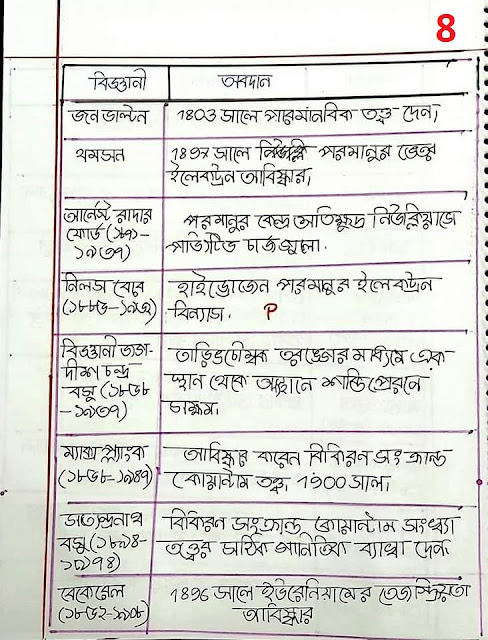 8
বিজ্ঞানী অবদান
জন ডাল্টন 1803 সালে পারমানবিক তত্ত্ব দেন।
থমসন 1897 সালে পরমানুর ভেতর
ইলেকট্রন আবিষ্কার।
আর্নেস্ট রাদার
ফোর্ড (১৮৭১-
১৯৩৭)
পরমানুর কেন্দ্র অতিক্ষুদ্র নিউক্লিয়াসে
পজিটিভ চার্জগুলো.
নিলস বোর
(১৮৮৫-১৯৬২)
হাইড্রোজেন পরমানুর ইলেকট্রন
বিন্যাস. P
বিজ্ঞানী জগ-
দীশ চন্দ্র
বসু (১৮৫৮
-১৯৩৭)
তাড়িতচৌম্বক তরঙ্গের মাধ্যমে এক
স্থান থেকে অন্যস্থানে শক্তি প্রেরনে
সক্ষম.
ম্যাক্স প্ল্যাংক
(১৮৫৮-১৯৪৭)
আবিষ্কার করেন বিকিরন সংক্রান্ত
কোয়ান্টাম তত্ত্ব 1900 সাল.
সত্যেন্দ্রনাথ
বসু (১৮৯৪-
১৯৭৪)
বিকিরন সংক্রান্ত কোয়ান্টাম সংখ্যা
তত্ত্বের সঠিক গানিতিক ব্যাখ্যা দেন.
বেকেরেল
(১৮৫২-১৯০৮)
1896 সালে ইউরেনিয়ামের তেজস্ক্রিয়তা
আবিষ্কার